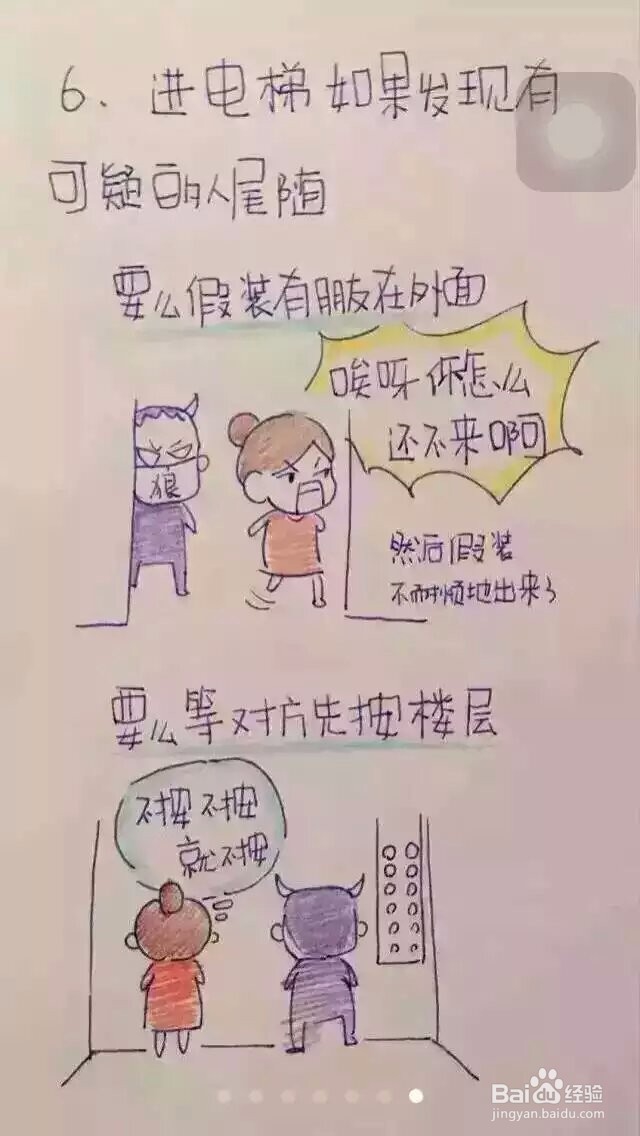 6、进电梯如果发现有
可疑的人尾随
要么假装有朋友在外面
唉呀你怎么
还不来啊
狼
然后假装
不耐烦地出来了
要么等对方先按楼层
不按不按
就不按
Bai百度经验
jingyan.baidu.com